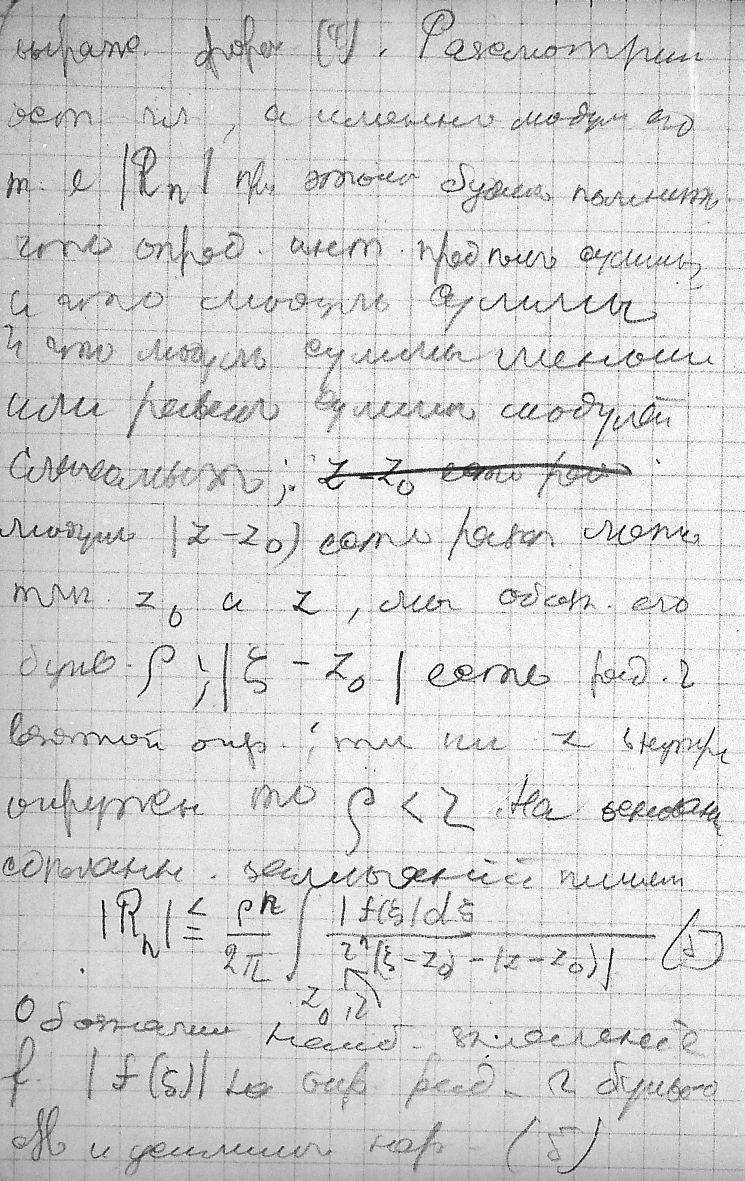 выраж. форм (4). Рассмотрим
ост чл, а именно модул его
т. е |Rₙ| при этом будем помнить
что опред. инт. предполаг сумму,
и что модуль суммы
и что модуль суммы меньш
или равен сумме модулей
слагаемых; z – z₀ есть рас
модуль |z – z₀) есть расст между
тчк. z₀ и z, мы обозн. его
букв. ρ; |ξ – z₀| есть рад. r
взятой окр.; тк z внутри
окружн то ρ < r. На основан
сделанн. замечаний пишем
|Rₙ| ≤ ρⁿ/2π ∫ |f(ξ)|dξ / rⁿ|(ξ–z₀) – (z–z₀)| (5)
z₀, r
Обозначим наиб. значение
f. |f(ξ)| на окр. рад. r буквою
M и усилим нер– (5)